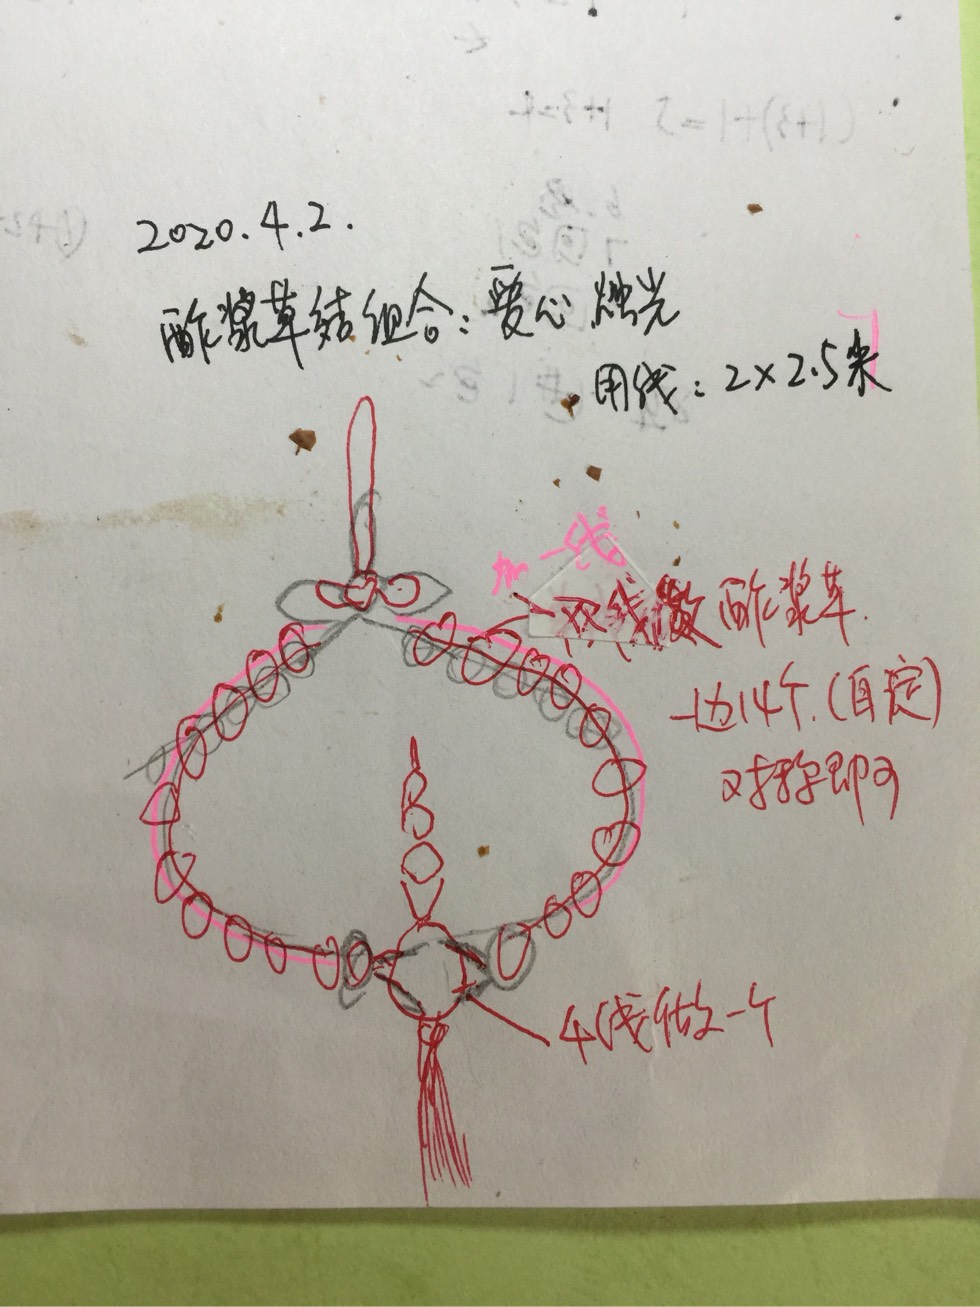 2020.4.2.
酢浆草结组合：爱心烛光
用线：2×2.5米
加一线
双线做酢浆草.
一边14个.(自定)
对称即可
4线做一个